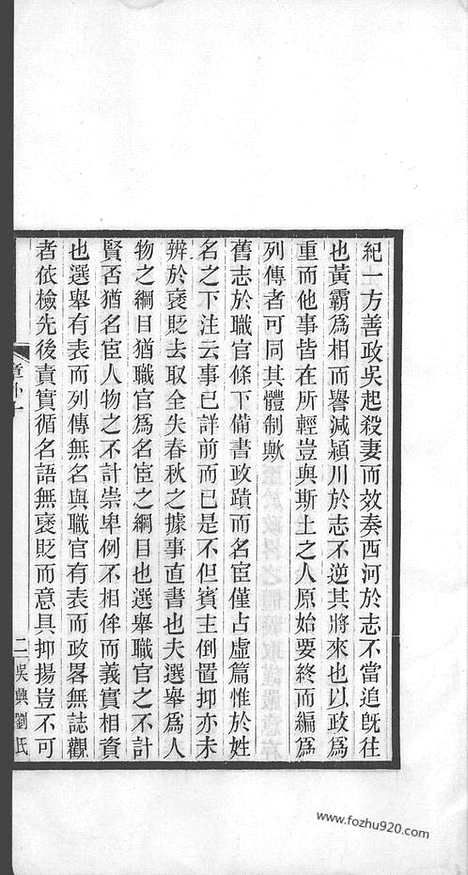 紀一方善政吳起殺妻而效奏西河於志不當追旣往
也黃霸爲相而譽減潁川於志不逆其將來也以政爲
重而他事皆在所輕豈與斯土之人原始要終而編爲
列傳者可同其體制歟
舊志於職官條下備書政蹟而名臣僅占虛篇惟於姓
名之下注云事已詳前而已是不但賓主倒置抑亦未
辨於褒貶去取全失春秋之據事直書也夫選舉爲人
物之綱目猶職官爲名臣之綱目也選舉職官之不計
賢否猶名臣人物之不計崇卑例不相侔而義實相資
也選舉有表而列傳無名與職官有表而政畧無誌觀
者依檢先後責實循名語無褒貶而意具抑揚豈不可
章卜一
二 吳興劉氏
www.fozhu920.com